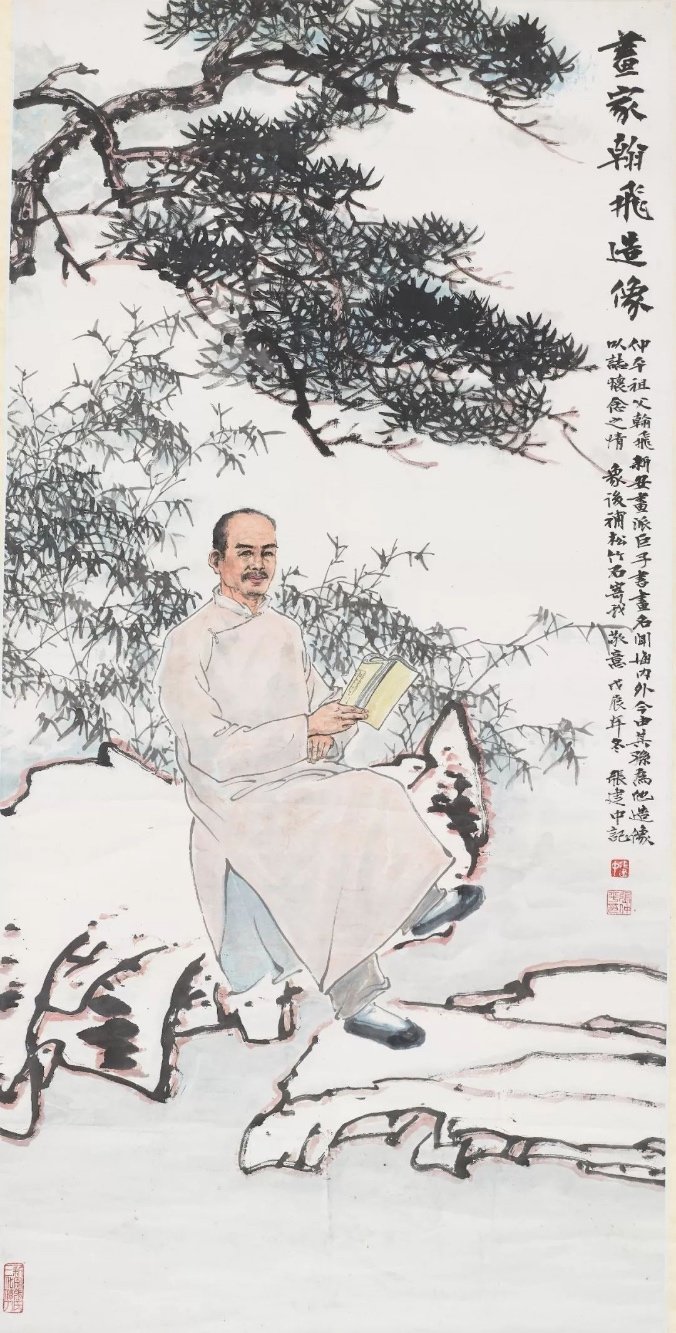 畫家翰飛造像
仲平祖父翰飛新安畫派巨子書畫名聞海内外今由其孫爲他造像
以誌懷念之情 象後補松竹石寄我敬意 戊辰年冬 張建中記